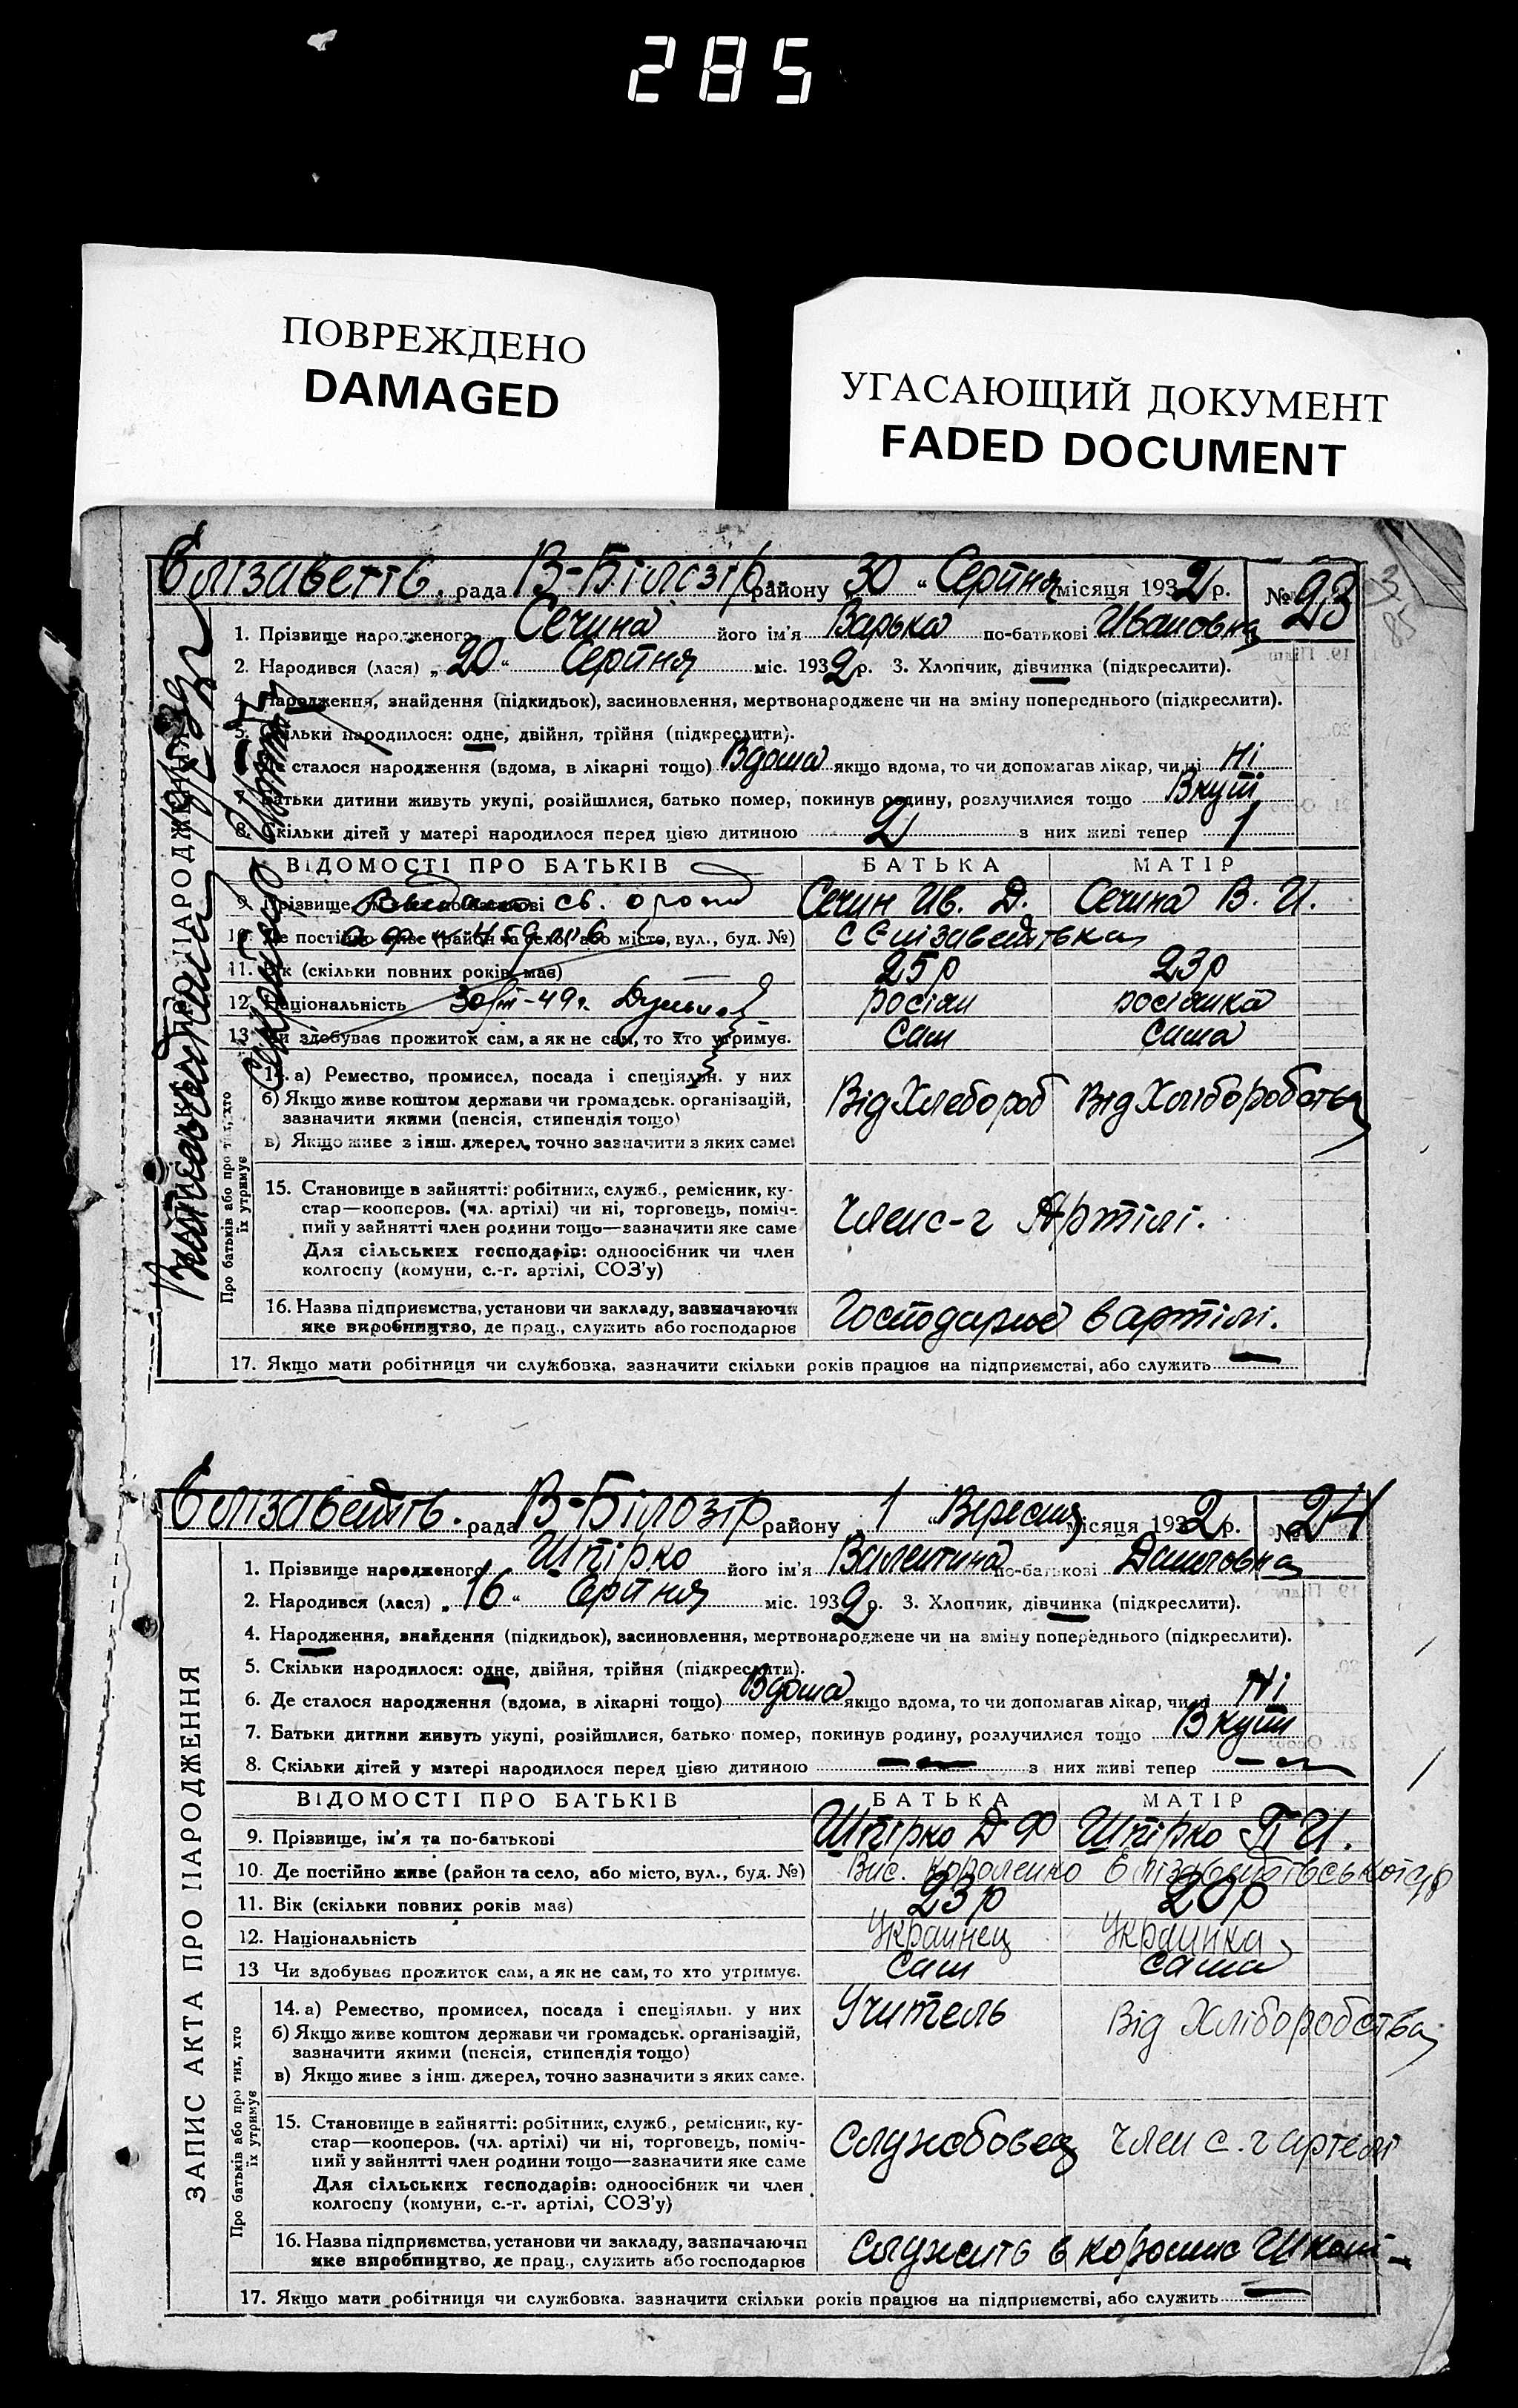 285
ПОВРЕЖДЕНО
DAMAGED
УГАСАЮЩИЙ ДОКУМЕНТ
FADED DOCUMENT
Єлізаветів. рада В-Білозір. району 30 " Серпня місяця 1932 р. № 23
3
85
1. Прізвище народженого Сечина його ім'я Варька по-батькові Ивановна
2. Народився (лася) „ 20 " Серпня міс. 1932 р. 3. Хлопчик, дівчинка (підкреслити).
4. Народження, знайдення (підкидьок), засиновлення, мертвонароджене чи на зміну попереднього (підкреслити).
5. Скільки народилося: одне, двійня, трійня (підкреслити).
сталося народження (вдома, в лікарні тощо) Вдома якщо вдома, то чи допомагав лікар, чи ні Ні
батьки дитини живуть укупі, розійшлися, батько помер, покинув родину, розлучилися тощо Вкупі
8. Скільки дітей у матері народилося перед цією дитиною 2 з них живі тепер 1
ВІДОМОСТІ ПРО БАТЬКІВ БАТЬКА МАТІР
9. Прізвище, Сечин Ив. Д. Сечина В. И.
10. Де постійно живе (район та село, або місто, вул., буд. №) с Єлізаветівка
11. Вік (скільки повних років має) 25р 23р
12. Національність 30/III-49г. росіян росіянка
13. Чи здобуває прожиток сам, а як не сам, то хто утримує. Сам Сама
14. а) Ремество, промисел, посада і спеціяльн. у них
б) Якщо живе коштом держави чи громадськ. організацій, Від Хлебороб Від Хліборобства
зазначити якими (пенсія, стипендія тощо)
в) Якщо живе з інш. джерел, точно зазначити з яких саме.
15. Становище в зайнятті: робітник, служб., ремісник, ку-
стар—кооперов. (чл. артілі) чи ні, торговець, поміч- Член с-г Артілі.
ний у зайнятті член родини тощо—зазначити яке саме
Для сільських господарів: одноосібник чи член
колгоспу (комуни, с.-г. артілі, СОЗ'у)
16. Назва підприємства, установи чи закладу, зазначаючи Господарює в артілі.
яке виробництво, де прац., служить або господарює
17. Якщо мати робітниця чи службовка, зазначити скільки років працює на підприємстві, або служить —
Про батьків або про тих, хто
їх утримує
Єлізаветів. рада В-Білозір району 1 " Вересня місяця 1932 р. № 24
1. Прізвище народженого Шпірко його ім'я Валентина по-батькові Даниловна
2. Народився (лася) „ 16 " Серпня міс. 1932 р. 3. Хлопчик, дівчинка (підкреслити).
4. Народження, знайдення (підкидьок), засиновлення, мертвонароджене чи на зміну попереднього (підкреслити).
5. Скільки народилося: одне, двійня, трійня (підкреслити).
6. Де сталося народження (вдома, в лікарні тощо) Вдома якщо вдома, то чи допомагав лікар, чи ні Ні
7. Батьки дитини живуть укупі, розійшлися, батько помер, покинув родину, розлучилися тощо Вкупі
8. Скільки дітей у матері народилося перед цією дитиною — — з них живі тепер — —
ВІДОМОСТІ ПРО БАТЬКІВ БАТЬКА МАТІР
9. Прізвище, ім'я та по-батькові Шпірко Д Ф Шпірко П И.
10. Де постійно живе (район та село, або місто, вул., буд. №) Вис. Короленко Єлізаветівської с/р
11. Вік (скільки повних років має) 23р 20р
12. Національність Украинец Украинка
13 Чи здобуває прожиток сам, а як не сам, то хто утримує. Сам Сама
14. а) Ремество, промисел, посада і спеціяльн. у них Учитель Від Хліборобства
б) Якщо живе коштом держави чи громадськ. організацій,
зазначити якими (пенсія, стипендія тощо)
в) Якщо живе з інш. джерел, точно зазначити з яких саме.
15. Становище в зайнятті: робітник, служб., ремісник, ку-
стар—кооперов. (чл. артілі) чи ні, торговець, поміч- Службовец Член с.г артелі
ний у зайнятті член родини тощо—зазначити яке саме
Для сільських господарів: одноосібник чи член
колгоспу (комуни, с.-г. артілі, СОЗ'у)
16. Назва підприємства, установи чи закладу, зазначаючи Служить в
яке виробництво, де прац., служить або господарює
17. Якщо мати робітниця чи службовка, зазначити скільки років працює на підприємстві, або служить —
ЗАПИС АКТА ПРО НАРОДЖЕННЯ
Про батьків або про тих, хто
їх утримує